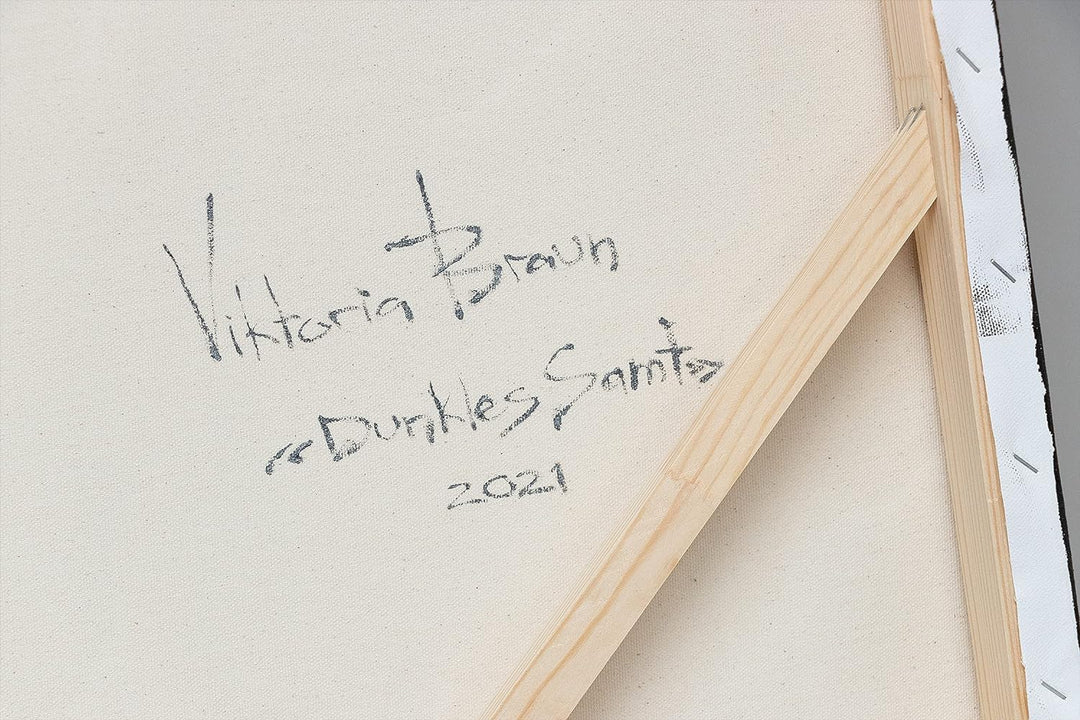 Viktoria Braun
“Dunkles Samt»
2021